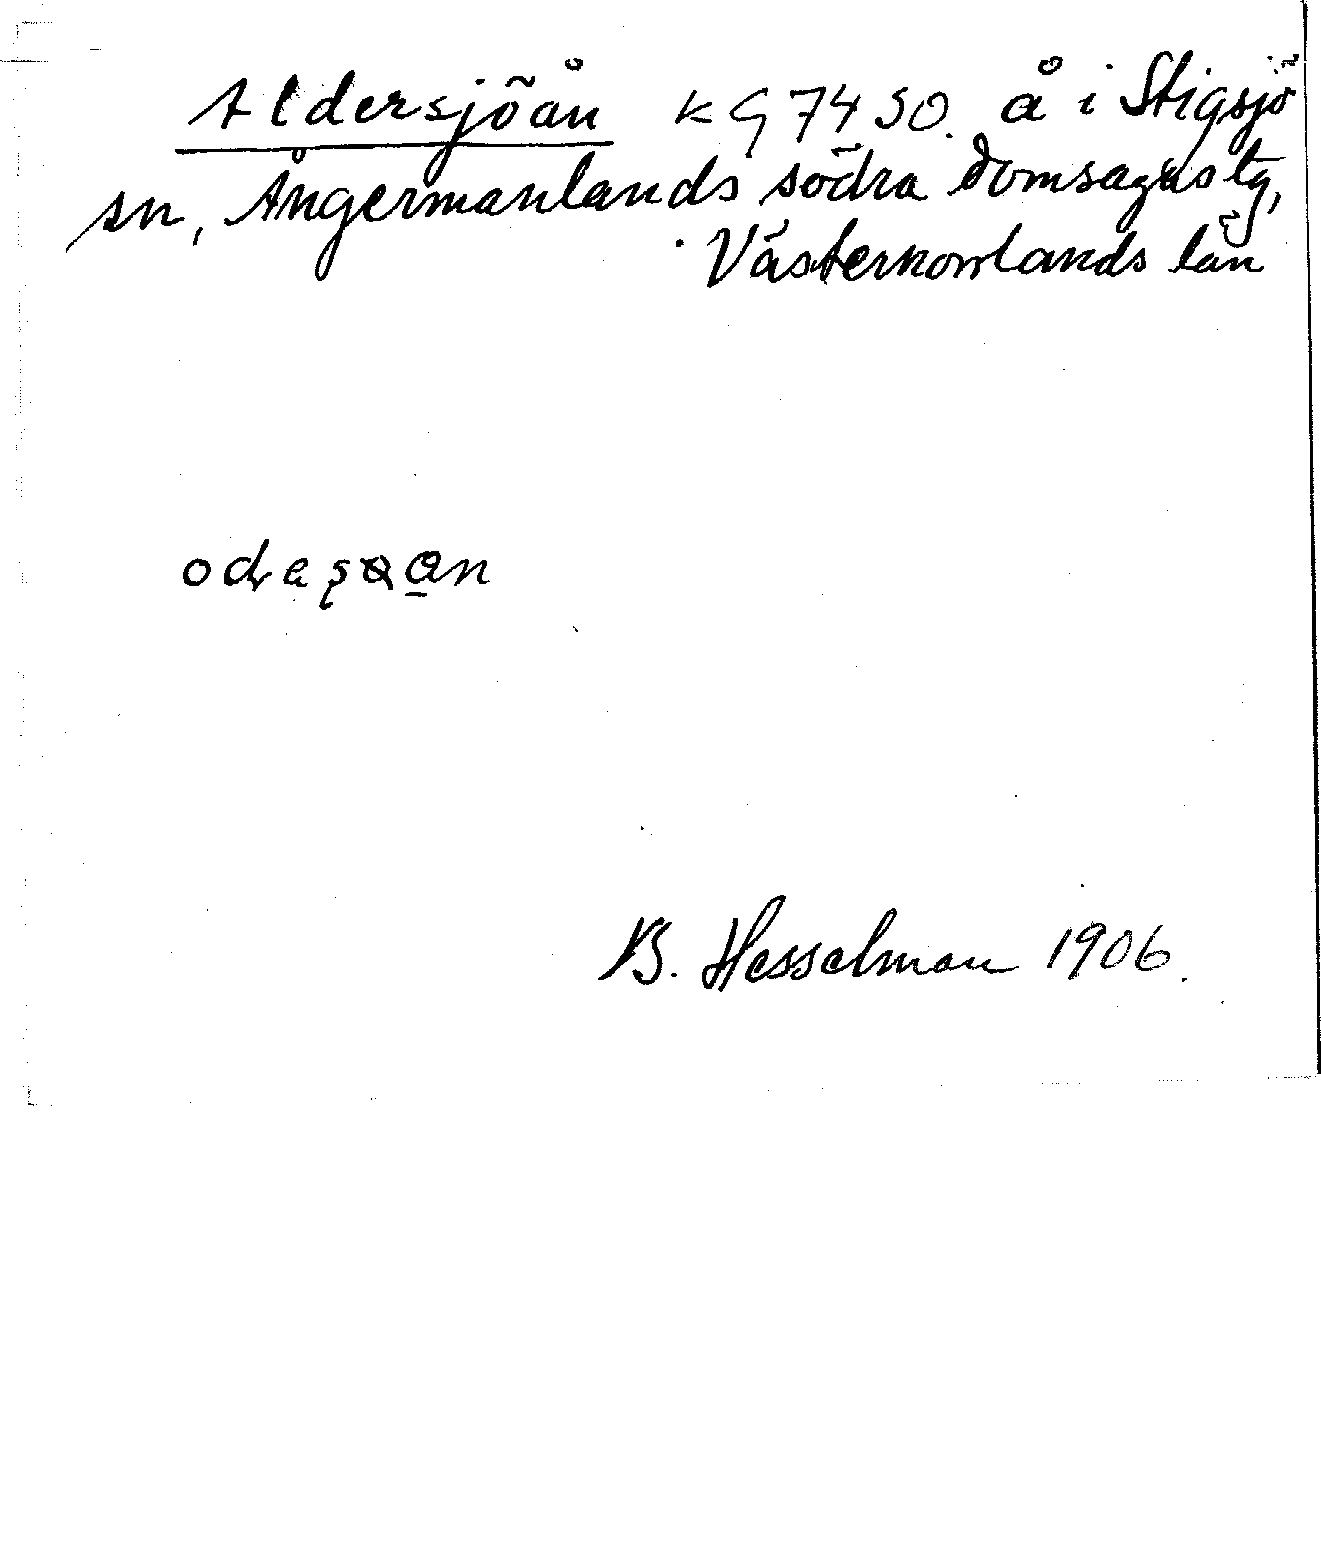 Åldersjöån K G 74 SO. å i Stigsjö
sn, Ångermanlands södra domsagas tg,
Västernorrlands län
B. Hesselman 1906.